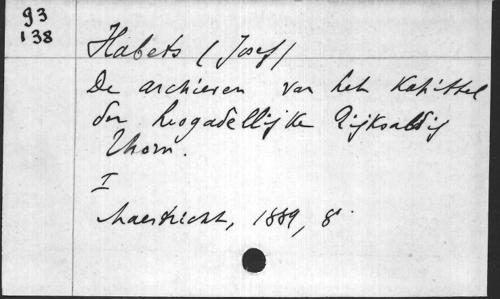 93
138
Habets (Josef)
De archieven van het Kapittel
der hoogadellijke Rijksabdij
Thorn.
I
Maestricht, 1889, 8°.